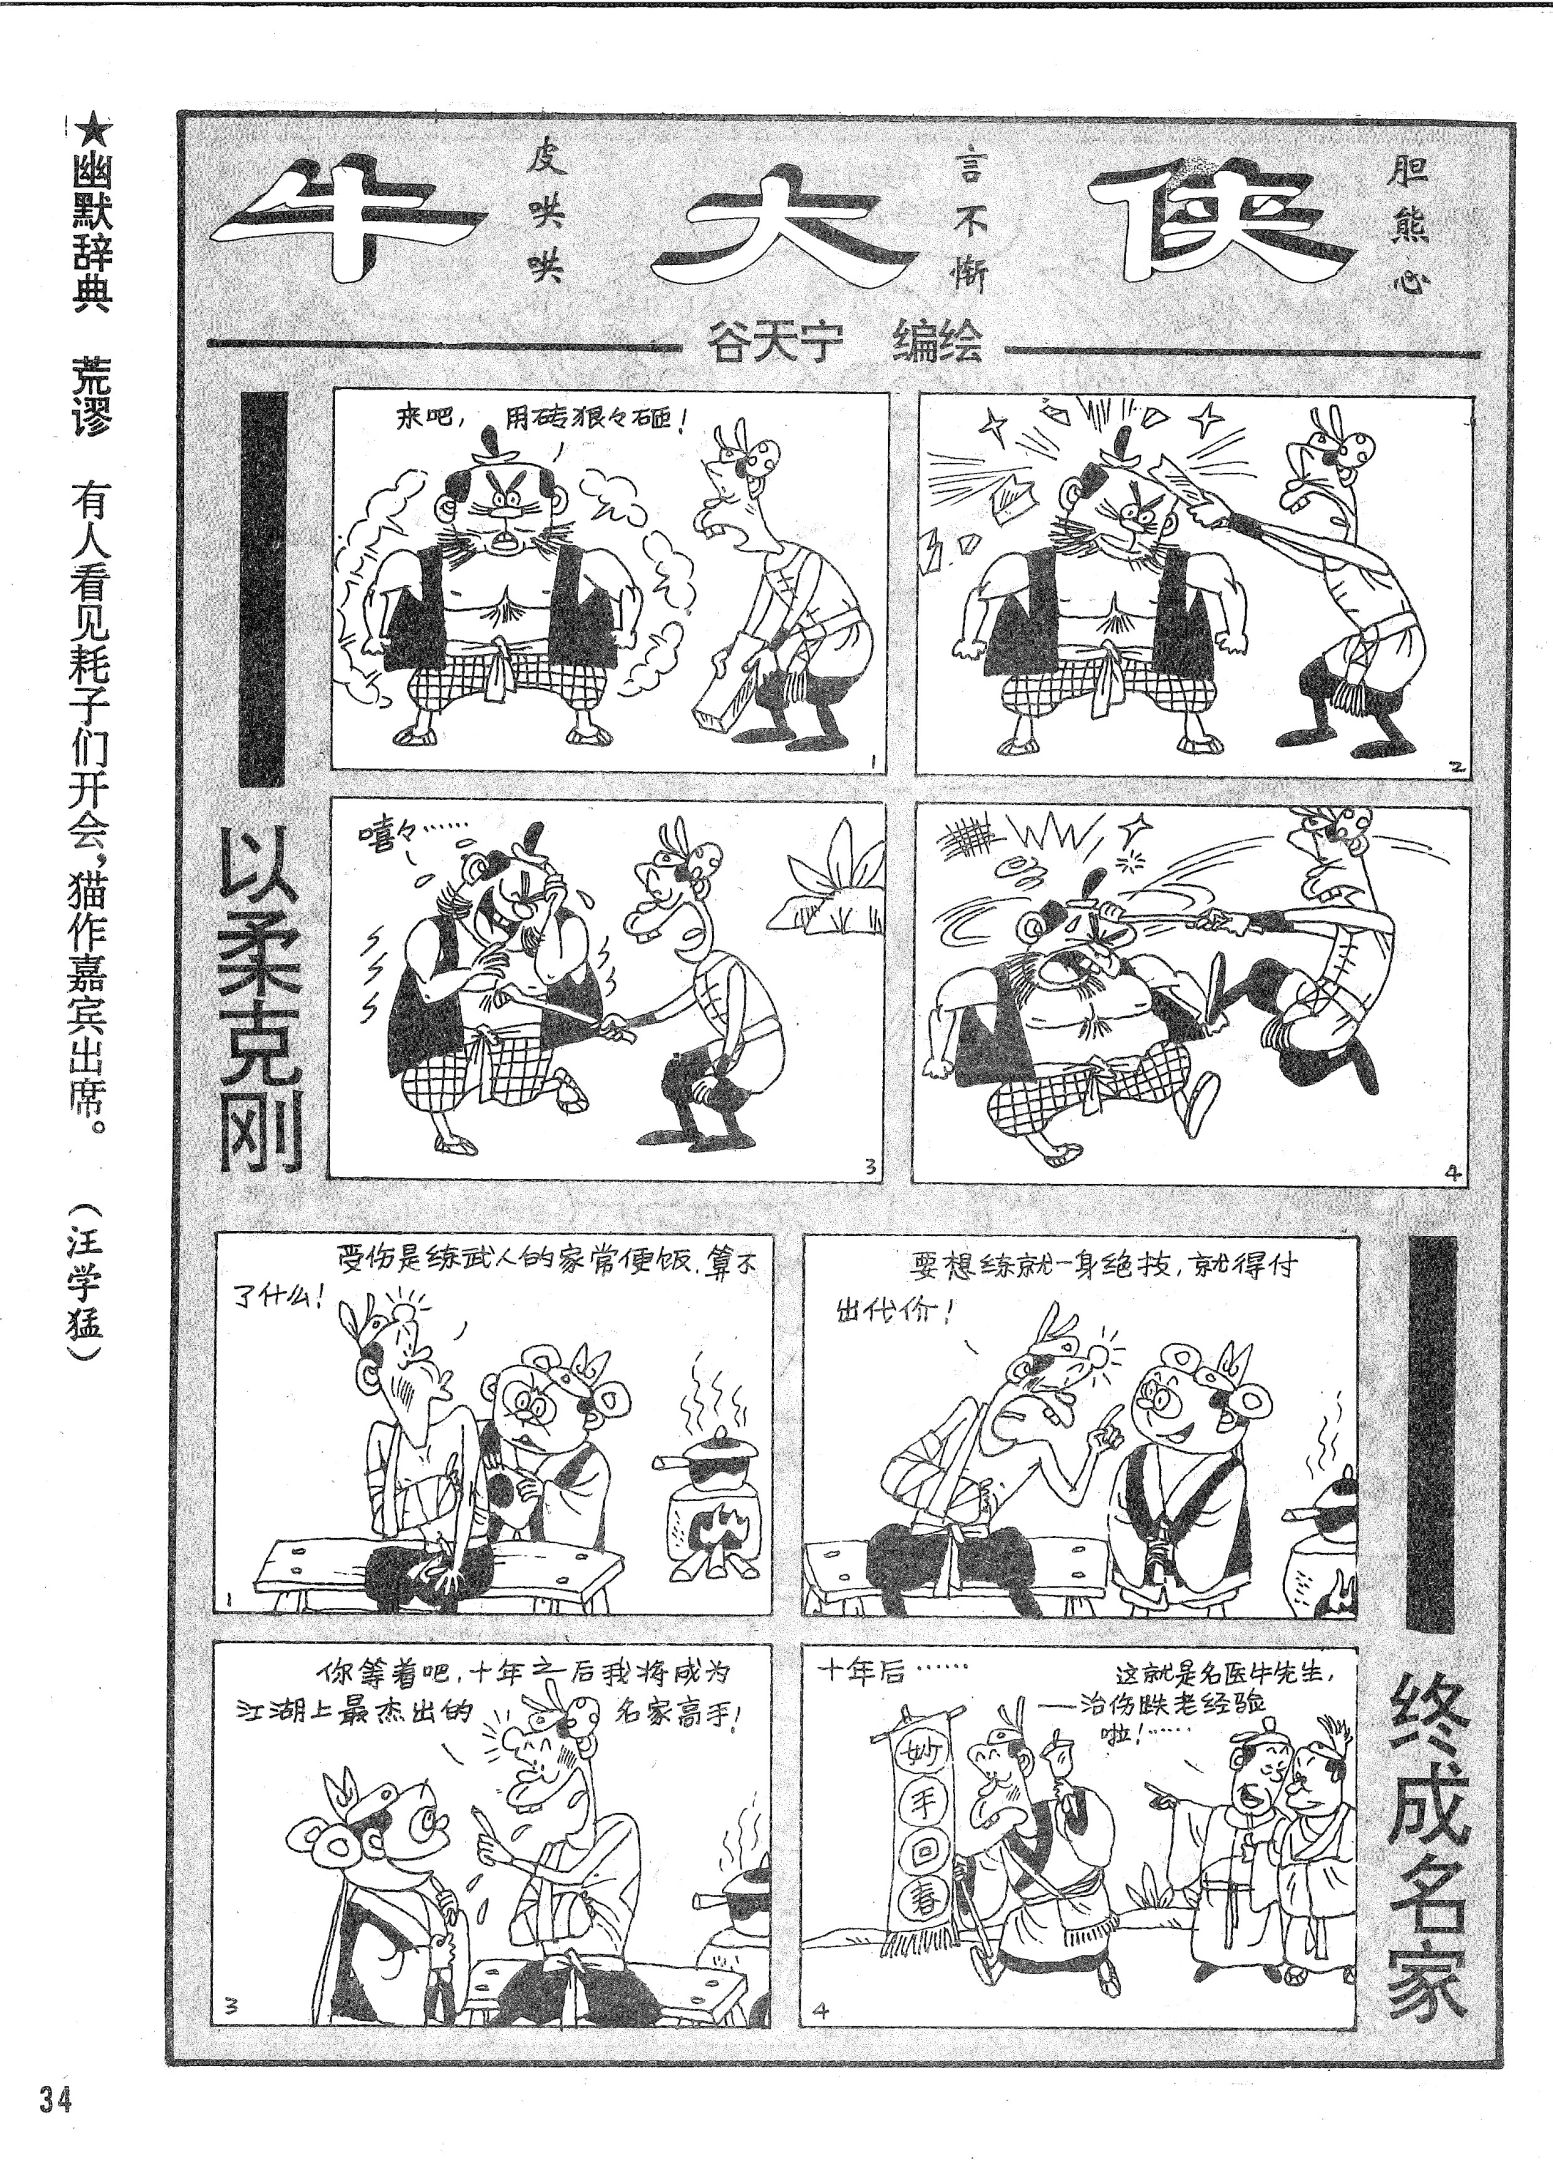 ★幽默辞典 荒谬 有人看见耗子们开会，猫作嘉宾出席。 （汪学猛）
牛皮哄哄
大言不惭
侠胆熊心
谷天宁 编绘
以柔克刚
来吧，用砖狠々砸！
1
2
嘻々……
3
4
终成名家
受伤是练武人的家常便饭，算不
了什么！
1
要想练就一身绝技，就得付
出代价！
你等着吧，十年之后我将成为
江湖上最杰出的名家高手！
3
十年后……
这就是名医牛先生，
——治伤跌老经验
啦！……
妙手回春
4
34